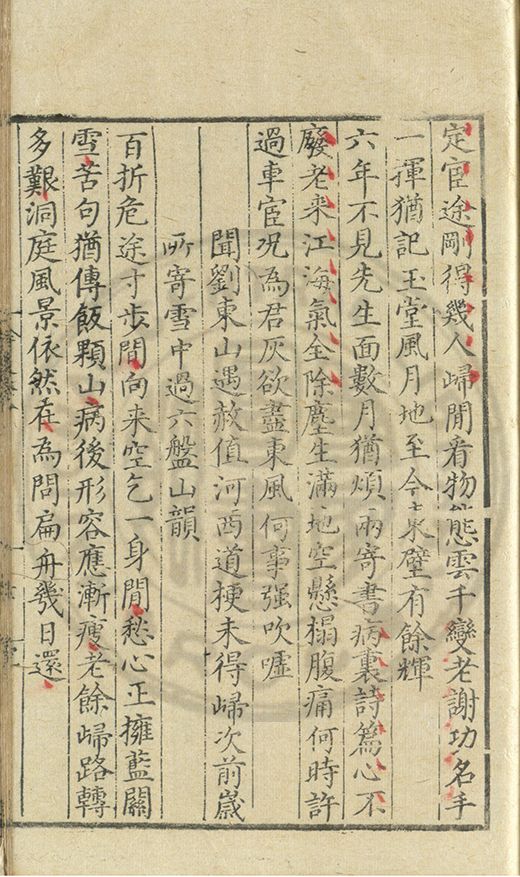 定宦途剛得幾人歸閒看物態雲千變老謝功名手
一揮猶記玉堂風月地至今東壁有餘輝
六年不見先生面數月猶煩兩寄書病裏詩篇心不
廢老来江海氣全除塵生滿地空懸榻腹痛何時許
過車宦况為君灰欲盡東風何事强吹嘘
聞劉東山遇赦值河西道梗未得歸次前嵗
所寄雪中過六盤山韻
百折危途寸步間向来空乞一身閒愁心正擁藍關
雪苦句猶傳飯顆山病後形容應漸瘦老餘歸路轉
多艱洞庭風景依然在為問扁舟幾日還